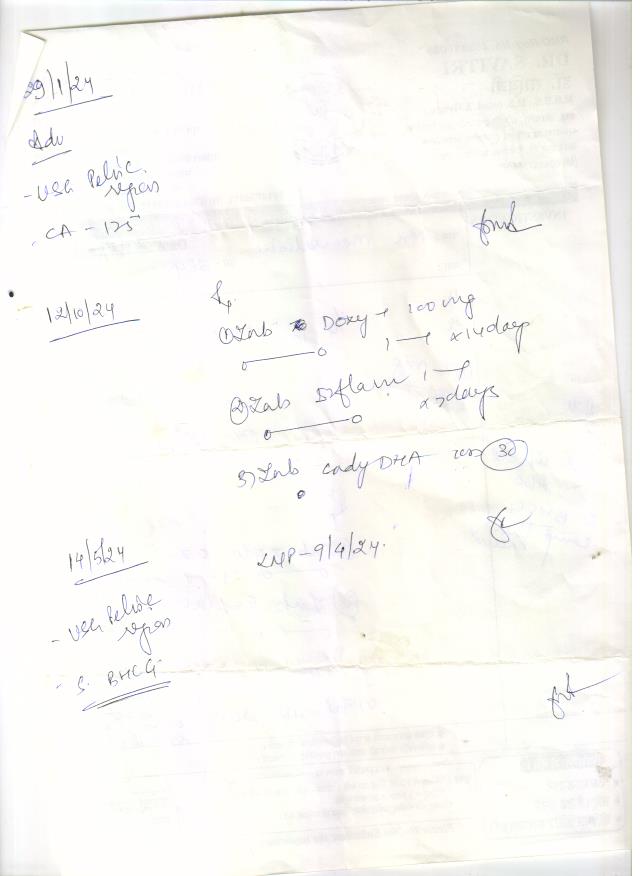 29/1/24
Adv
- USG Pelvic
region
- CA - 125
12/10/24
Rx
① Tab Doxy - 100 mg
1 — x 14 days
② Tab Sflam 1 —
x 5 days
3) Tab Cady DHA 30
14/5/24
LMP - 9/4/24.
- USG Pelvic
region
- S. BHCG